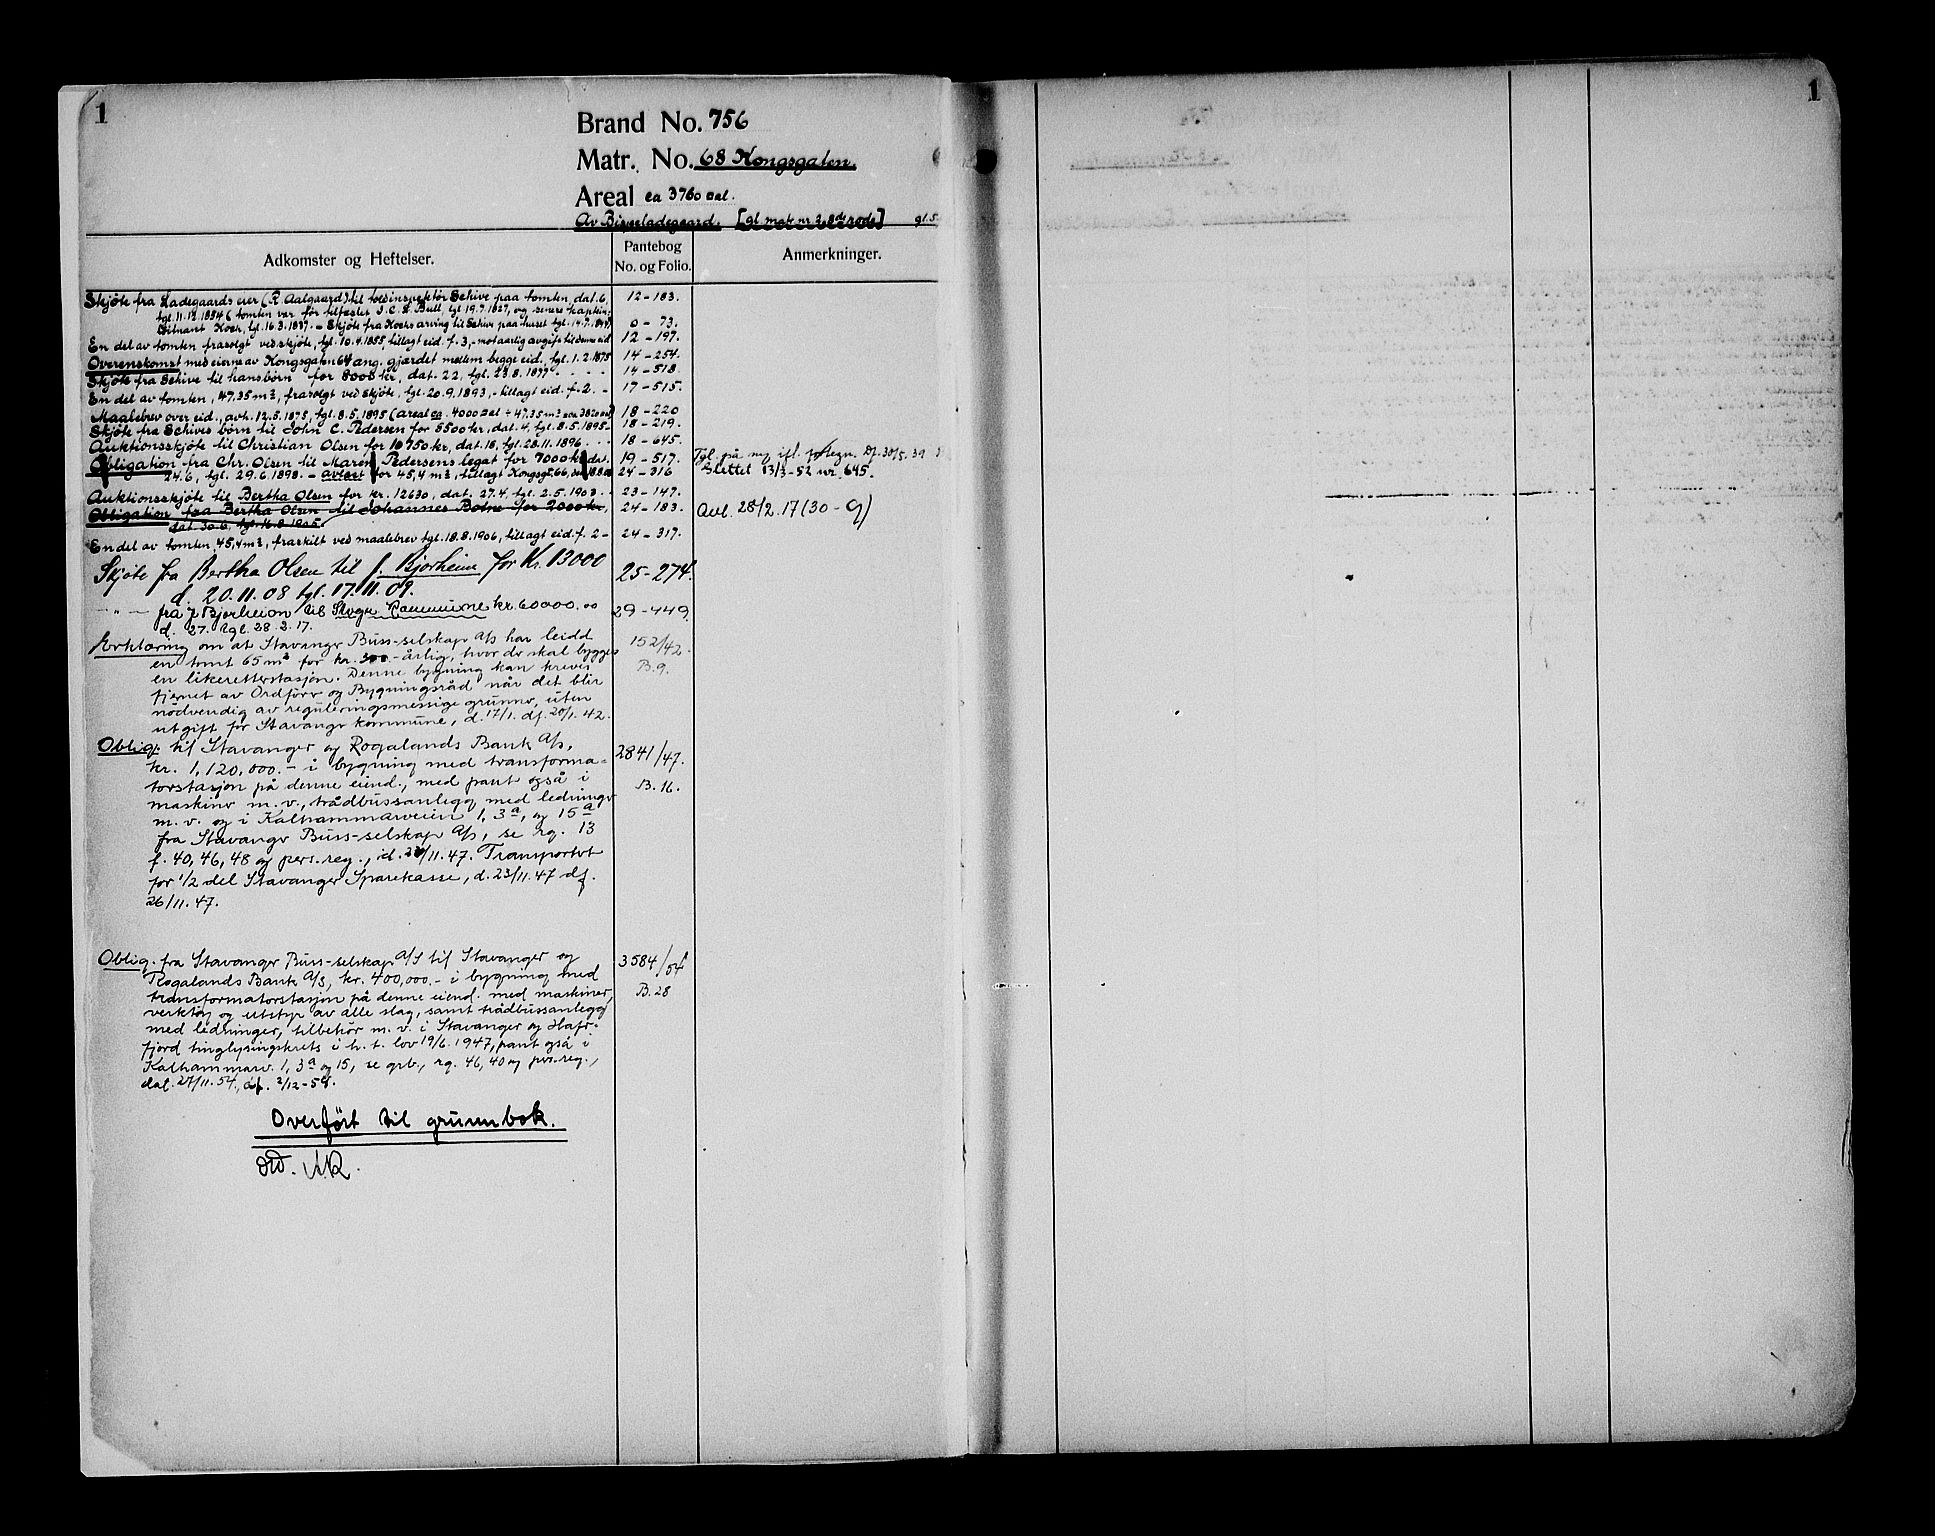 1
Brand No. 756
Matr. No. 68 Kongsgaten.
Areal ca 3760 □al.
Av Bispeladegaard. [gl. mat. nr 3, 8de rode] gl. 5
Adkomster og Heftelser.
Pantebog
No. og Folio.
Anmerkninger.
Skjøte fra Ladegaards eier (R. Aalgaard) til toldinspektør Schive paa tomten, dat. 6, 12-183.
tgl. 11.12.1854 tomten var før tilfæstet J. C. Bull, tgl 19.7.1827, og senere kaptein
Løitnant Koer, tgl. 16.3.1837. - Skjøte fra Koers arving til Schive paa huset tgl. 14.7.1847 0-73.
En del av tomten frasolgt ved skjøte, tgl. 10.4.1855, tillagt eid. f. 3, - mot aarlig avgift til denne eid 12-197.
Overenskomst med eierne av Kongsgaten 64 ang. gjærdet mellem begge eid. tgl. 1.2.1875 14-254.
Skjøte fra Schive til hans børn for 8000 kr, dat. 22, tgl. 23.8.1877. 14-518.
En del av tomten, 47,35 m², frasolgt ved skjøte, tgl. 20.9.1893, - tillagt eid. f. 2. - 17-515.
Maalebrev over eid., avh. 12.5.1875, tgl. 8.5.1895 (areal ca. 4000 □al ÷ 47,35 m² = ca 3820 □al) 18-220
Skjøte fra Schives børn til John C. Pedersen for 5500 kr., dat. 4, tgl. 8.5.1895- 18-219.
Auktionsskjøte til Christian Olsen for 10750 kr, dat. 18, tgl. 28.11.1896. 18-645.
Obligation fra Chr. Olsen til Maren Pedersens legat for 7000 kr, dat. 19-517. Tgl. på ny ifl. forlegn. Df. 30/5.39
24.6, tgl. 29.6.1898. - avløst for 45,4 m², tillagt Kongsgt. 66, 24-316 Slettet 13/3-52 nr. 645.
Auktionsskjøte til Bertha Olsen for kr. 12630, dat. 27.4, tgl. 2.5.1903. 23-147.
Obligation fra Bertha Olsen til Johannes Botne for 2000 kr, 24-183. Avl. 28/2.17 (30-9)
dat. 30.6, tgl. 16.8.1905.
En del av tomten, 45,4 m², fraskilt ved maalebrev tgl. 18.8.1906, tillagt eid. f. 2- 24-317.
Skjøte fra Bertha Olsen til J. Bjorheim for Kr. 13000 25-274.
d. 20.11.08 tgl. 17.11.09.
" " fra J Bjorheim til Stvgr Kommune kr. 60000.00 29-449.
d. 27. tgl. 28.2.17.
Erklæring om at Stavanger Buss-selskap A/S har leidd 152/42.
en tomt 65 m² for kr. 300.- årlig, hvor de skal bygge B. 9.
en likeretterstasjon. Denne bygning kan kreves
fjernet av Ordfører og Bygningsråd når det blir
nødvendig av reguleringsmessige grunner, uten
utgift for Stavanger kommune, d. 17/1. df. 20/1. 42.
Oblig. til Stavanger og Rogalands Bank A/S, 2841/47.
kr. 1,120,000.- i bygning med transforma-
torstasjon på denne eiend., med pant også i B. 16.
maskiner m. v., trådbussanlegg med ledninger
m. v. og i Kalhammarveien 1, 3ª, og 15ª
fra Stavanger Buss-selskap A/S, se rg. 13
f. 40, 46, 48 og pers. reg., d. /11. 47. Transportert
for 1/2 del Stavanger Sparekasse, d. 23/11.47 df.
26/11.47.
Oblig. fra Stavanger Buss-selskap A/S til Stavanger og 3584/54
Rogalands Bank A/S, kr. 400,000.- i bygning med
transformatorstasjon på denne eiend. med maskiner, B. 28
verktøy og utstyr av alle slag, samt trådbussanlegg
med ledninger, tilbehør m. v. i Stavanger og Hafrs-
fjord tinglysingskrets i h. t. lov 19/6. 1947, pant også i
Kalhammarv. 1, 3ª og 15, se grb., rg. 46, 40 og pers. reg.,
dat. 27/11.54., df. 2/12-54.
Overført til grunnbok.
1